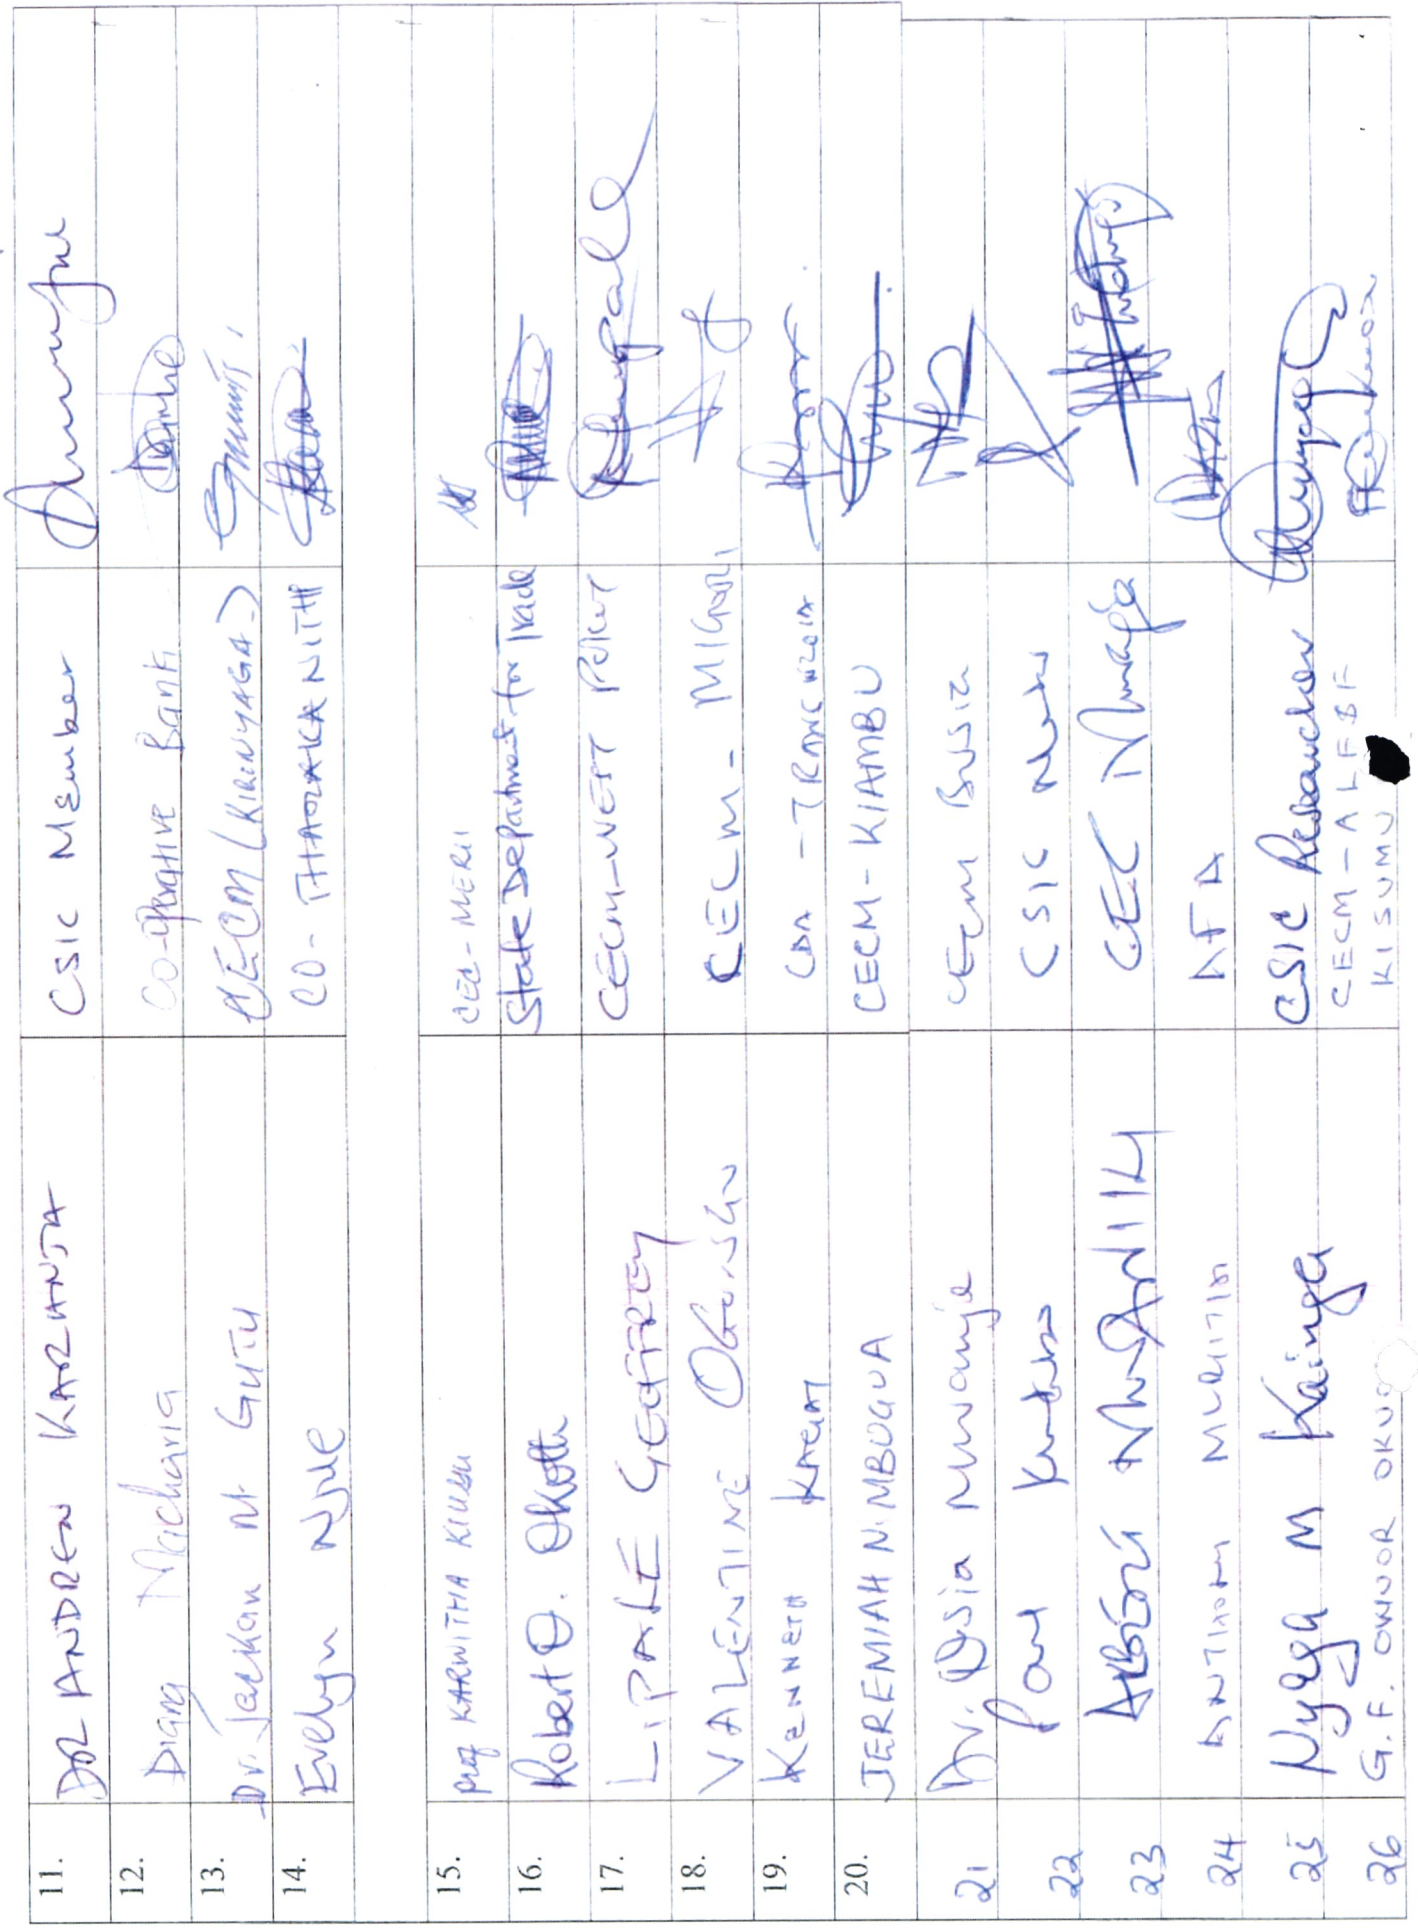 11. DR ANDREW KARANJA CSIC Member
12. Diana Macharia Co-operative Bank
13. Dr. Jackan M. Gutu CECM (KIRINYAGA)
14. Evelyn Njue CO-THARAKA NITHI
15. Prof KARWITHA KIUGU CEC-MERU
16. Robert O. Okoth State Department for Trade
17. LIPALE GEOFFREY CECM-WEST POKOT
18. VALENTINE OGONGO CECM- MIGORI
19. KENNETH KAGAI CDA - TRANS NZOIA
20. JEREMIAH N. MBOGUA CECM-KIAMBU
21 Dr. Osia Mwanje CECM BUSIA
22 Paul CSIC
23 ALBERT CEC
24 ANTHONY MURIITHI AFA
25 Nyaga M Kainga CSIC Researcher
26 G.F. OWUOR OKUO CECM-ALFBF
KISUMU